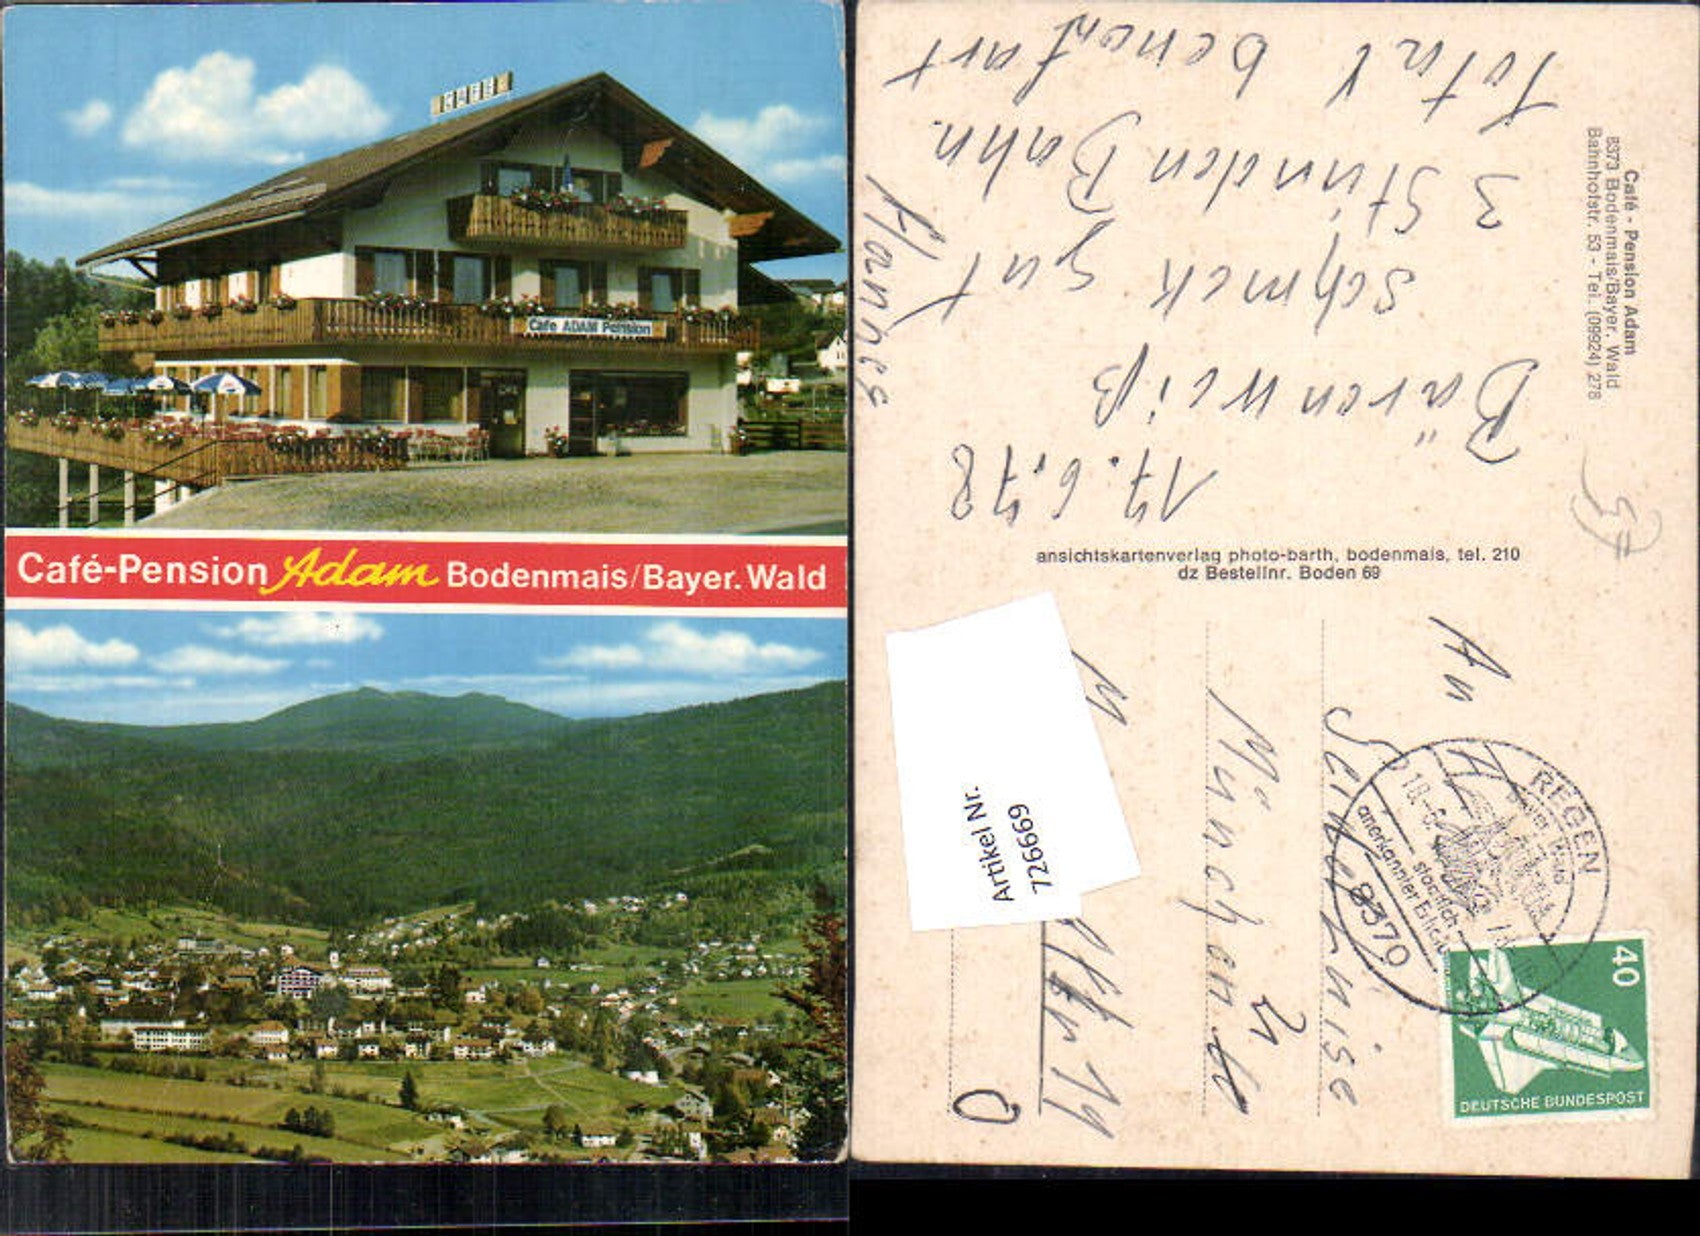 KAFE
Cafe ADAM Pension
Café-Pension Adam Bodenmais/Bayer. Wald
Café - Pension Adam
8373 Bodenmais/Bayer. Wald
Bahnhofstr. 53 - Tel. (09924) 278
17.6.78
Bärenweiß
schmek gut
3 Stunden Bahn.
Total
Hannes
ansichtskartenverlag photo-barth, bodenmais, tel. 210
dz Bestellnr. Boden 69
An
München
14
Artikel Nr.
7266669
8370 REGEN
staatlich
anerkannter
40
DEUTSCHE BUNDESPOST